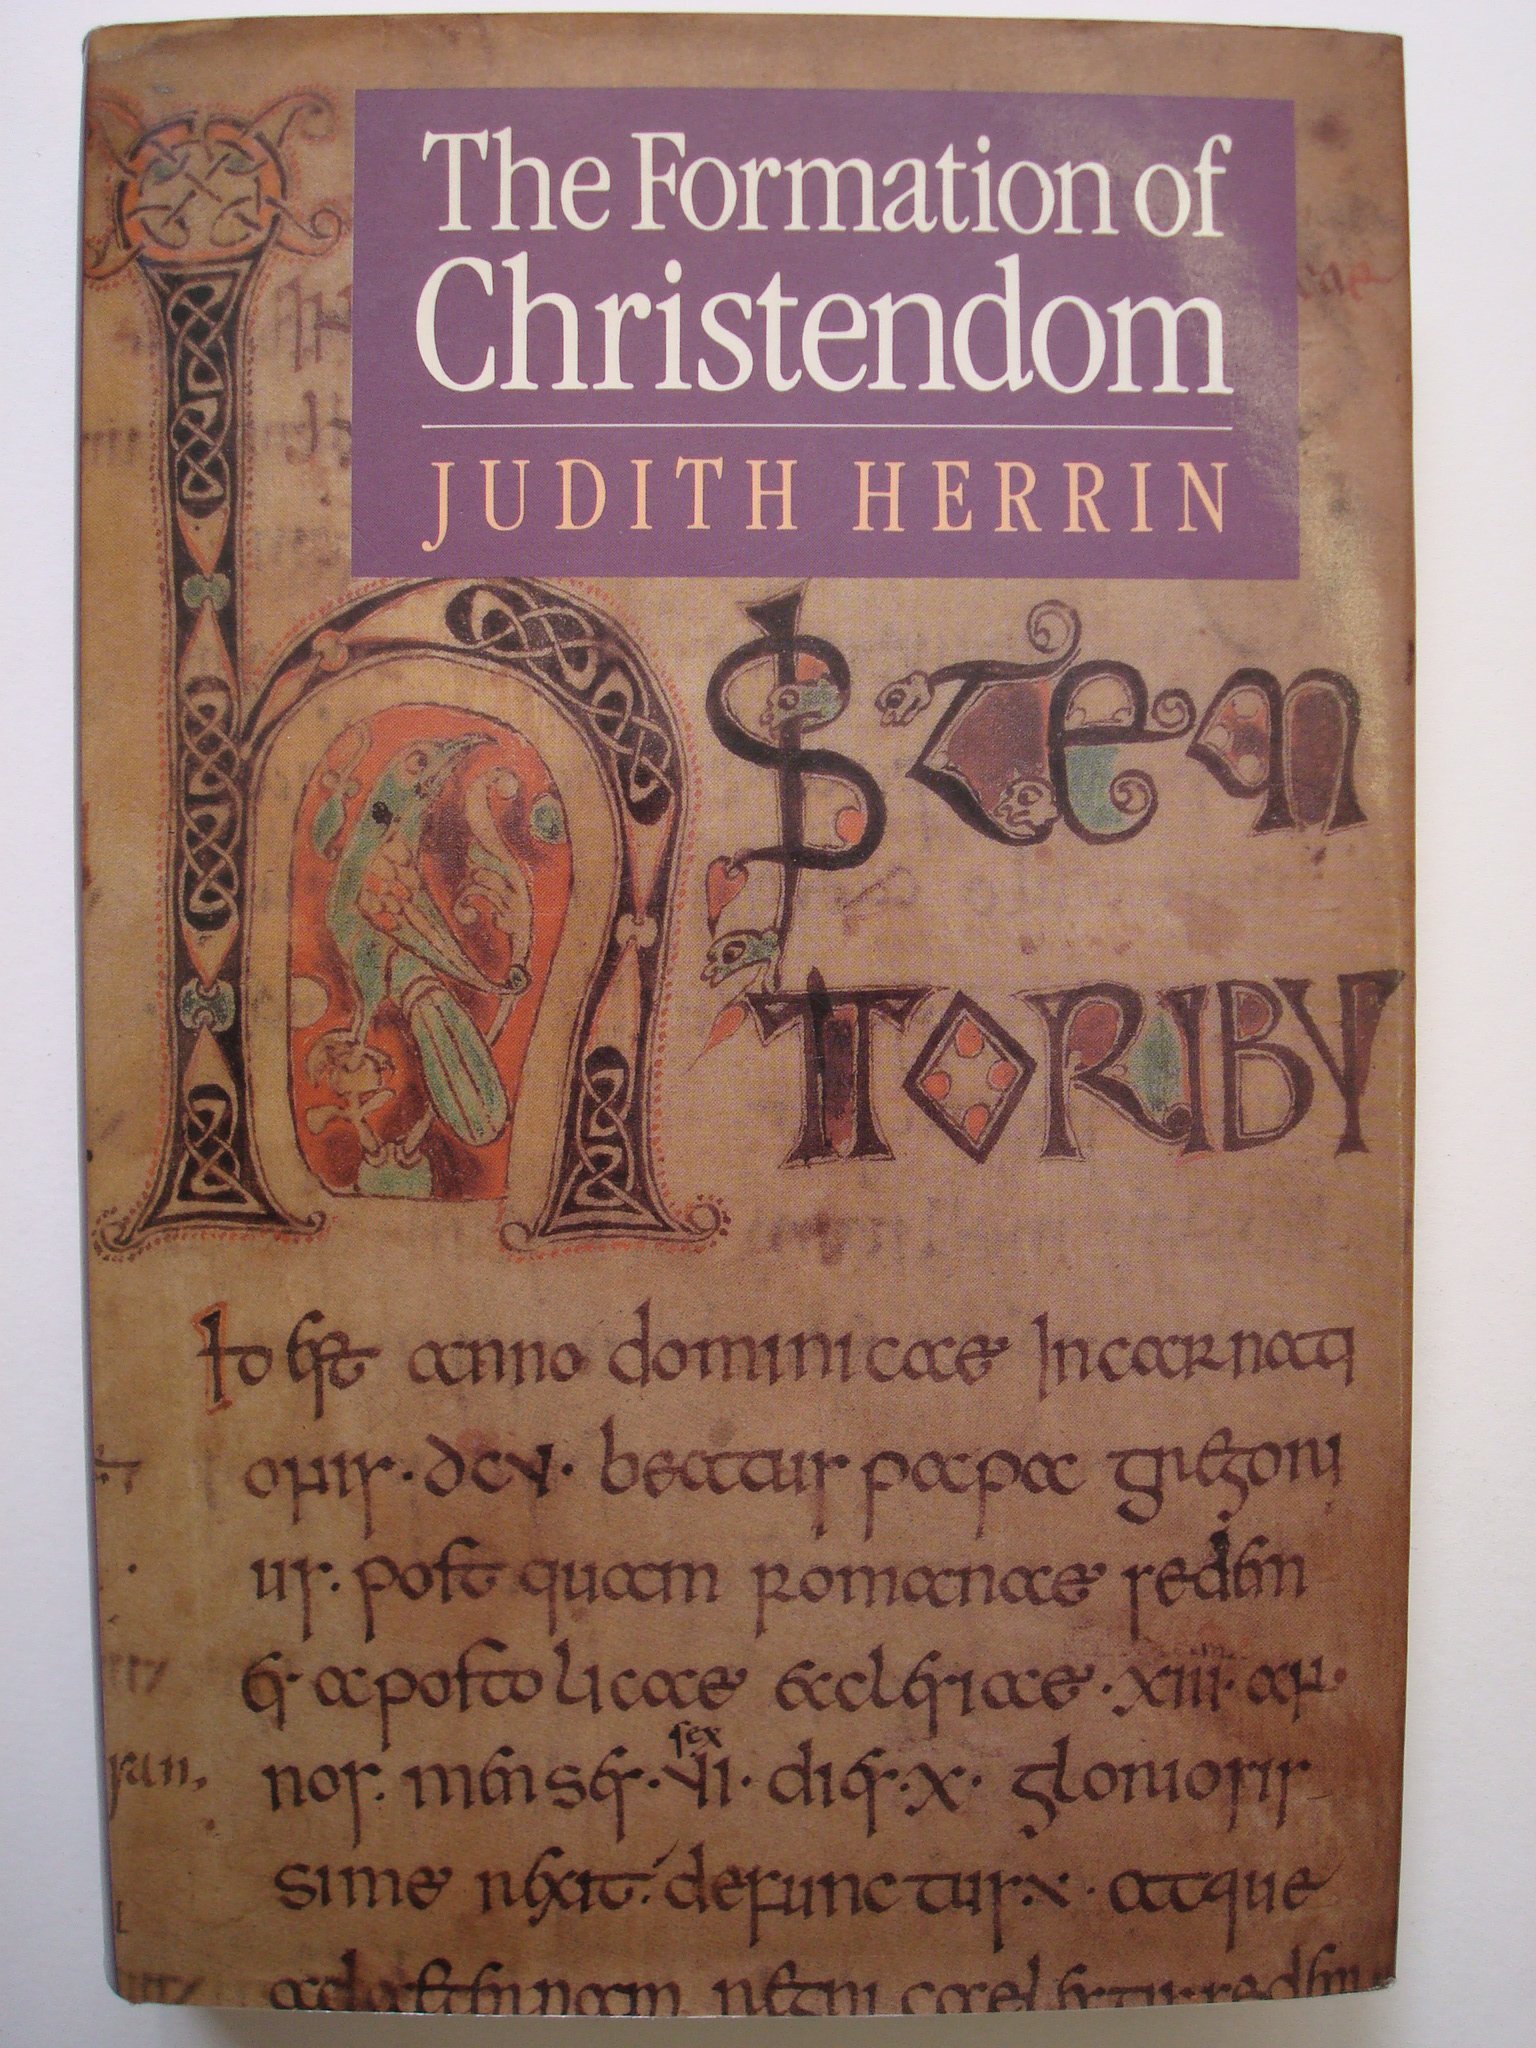 The Formation of
Christendom
JUDITH HERRIN
hIS TEM
PORIBV
Id est anno dominicae Incarnati
onis. dcv. beatus papa gregori
us. postquam romanae
apostolicae ecclesiae. xiii. an
sex
nos. menses. vi. dies. x. gloriosis
sime rexit. defunctus. atque
ad aeternam regni caelestis